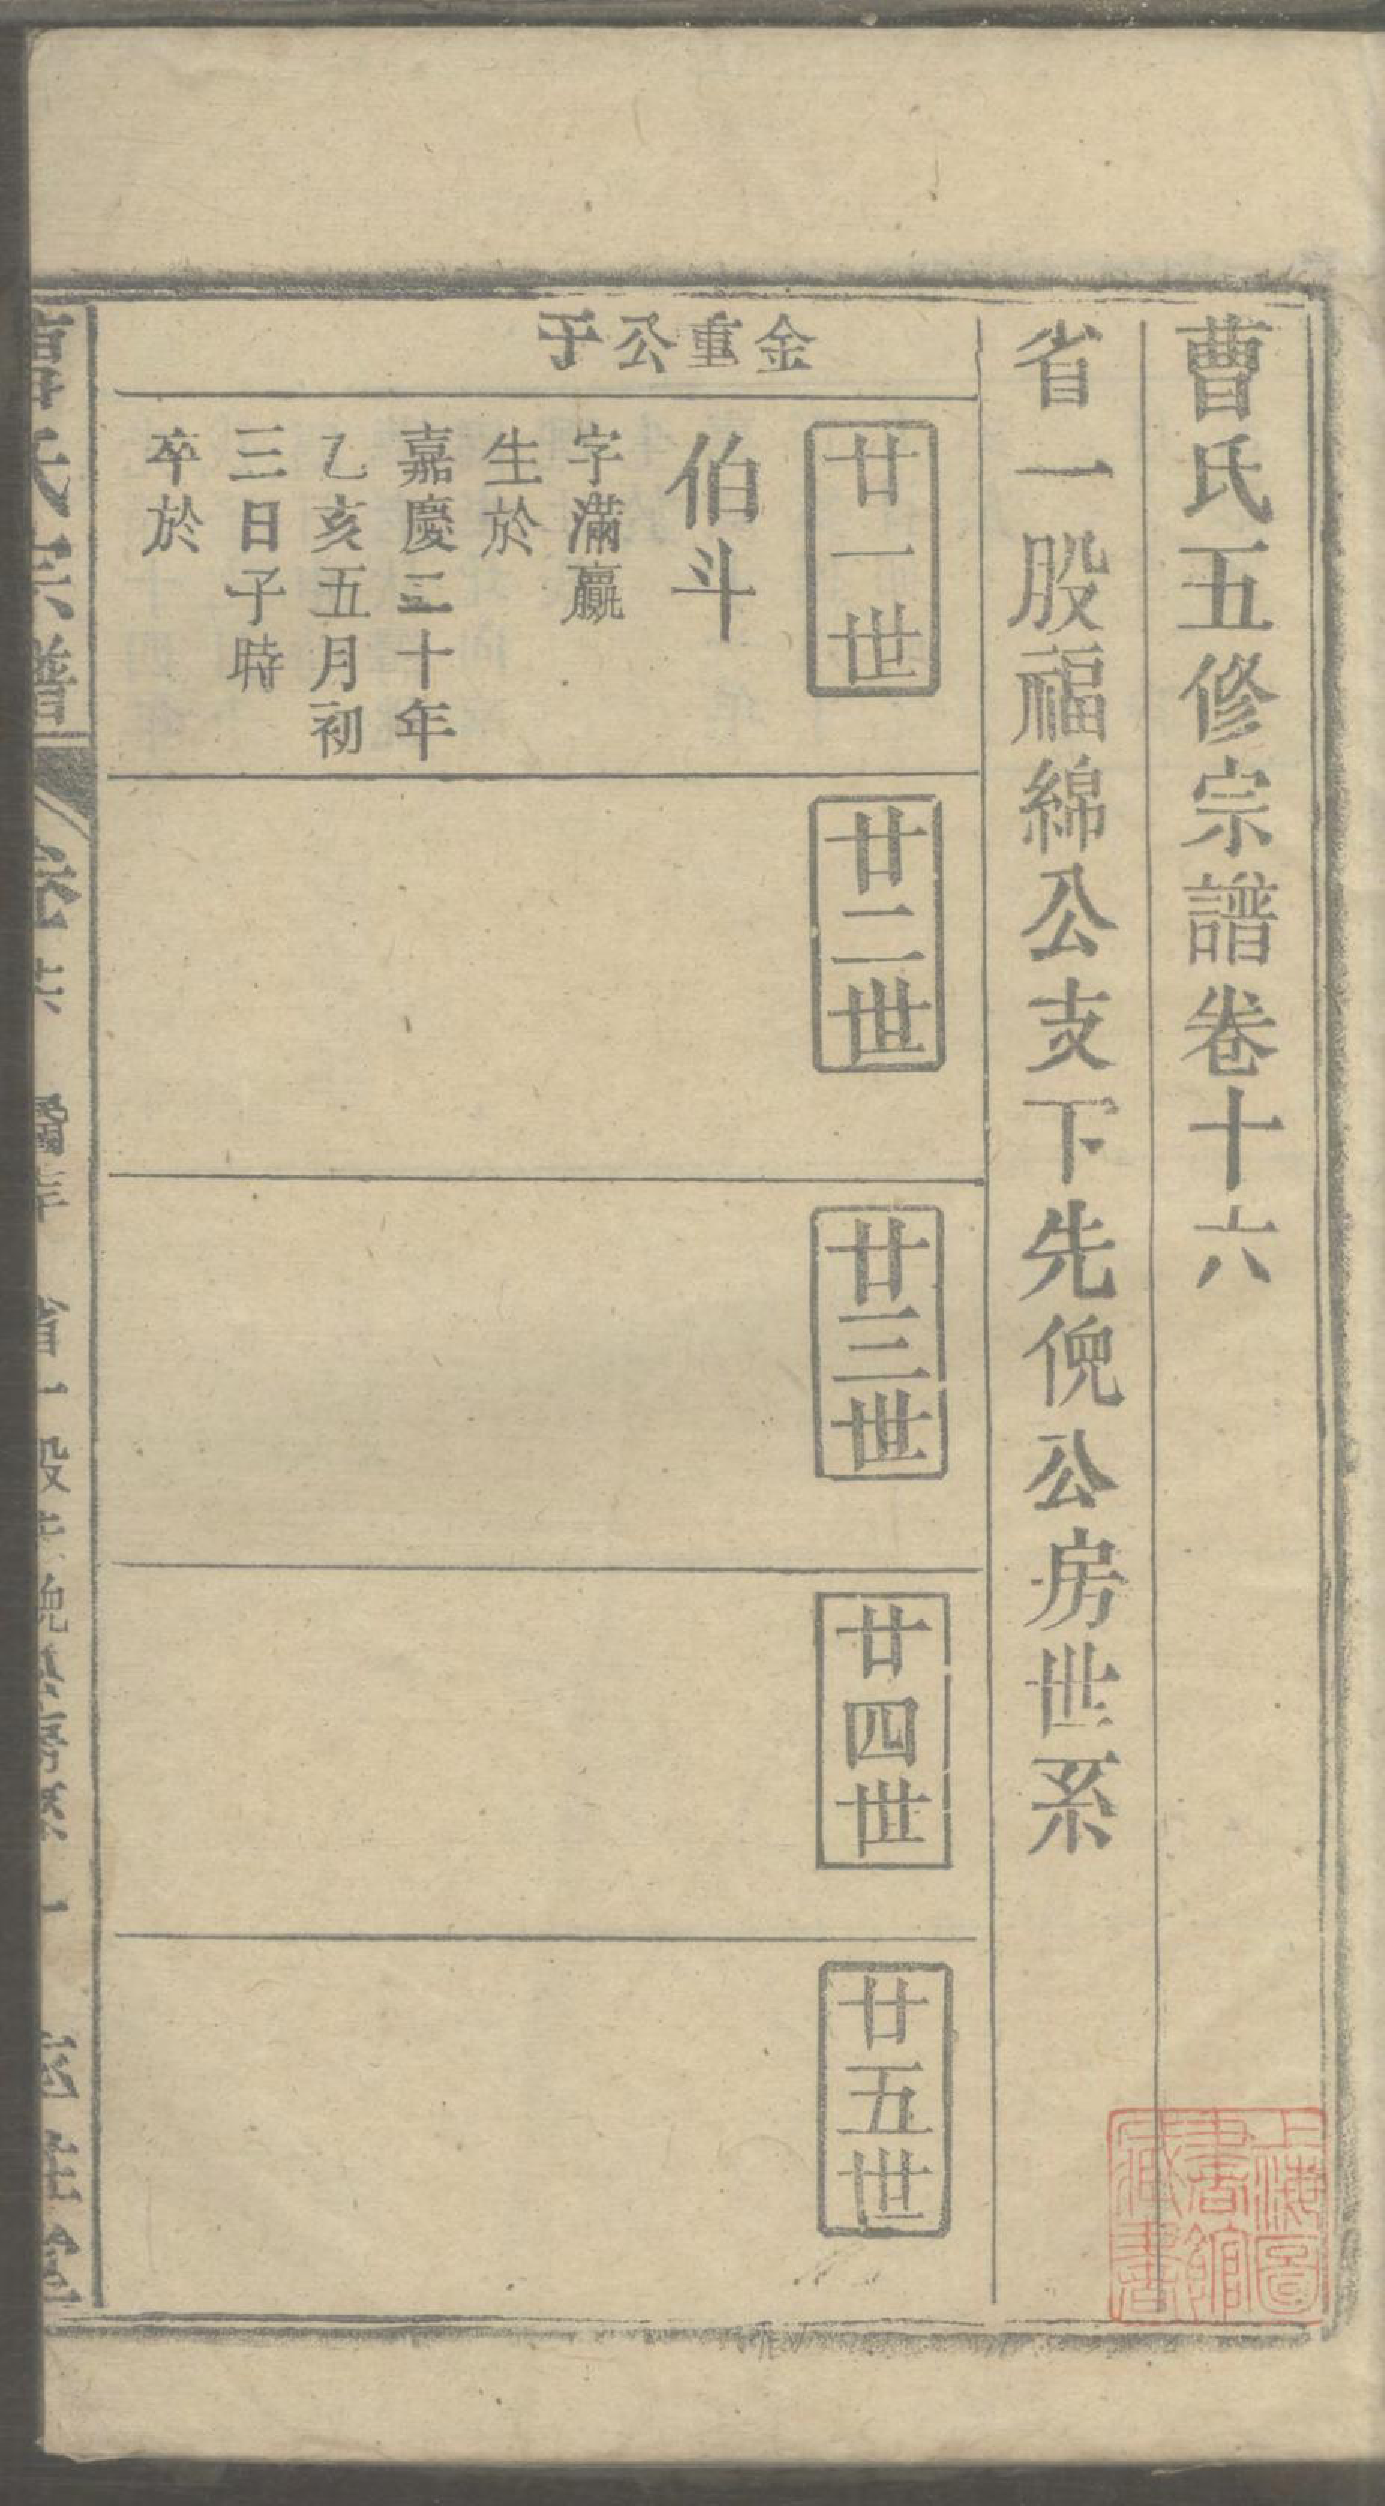 曹氏五修宗譜卷十六
省一股福綿公支下先俛公房世系
金重公子
廿一世
伯斗
字滿贏
生於
嘉慶二十年
乙亥五月初
三日子時
卒於
廿二世
廿三世
廿四世
廿五世
上海圖
書館
藏書